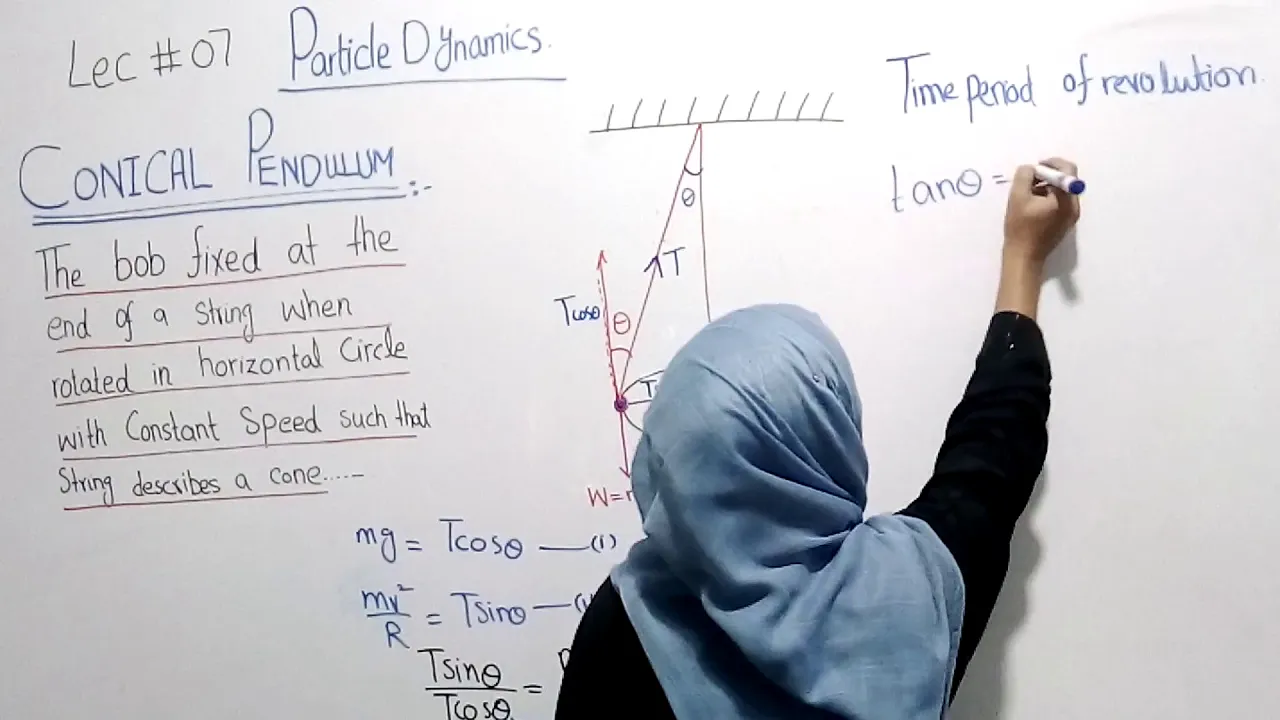 Lec # 07 Particle Dynamics.
CONICAL PENDULUM :-
The bob fixed at the
end of a string when
rotated in horizontal Circle
with Constant Speed such that
String describes a cone.....-
θ
T
Tcosθ
θ
W=
mg = Tcosθ —(1)
mv²/R = Tsinθ —
Tsinθ/Tcosθ. =
Time period of revolution.
tanθ =